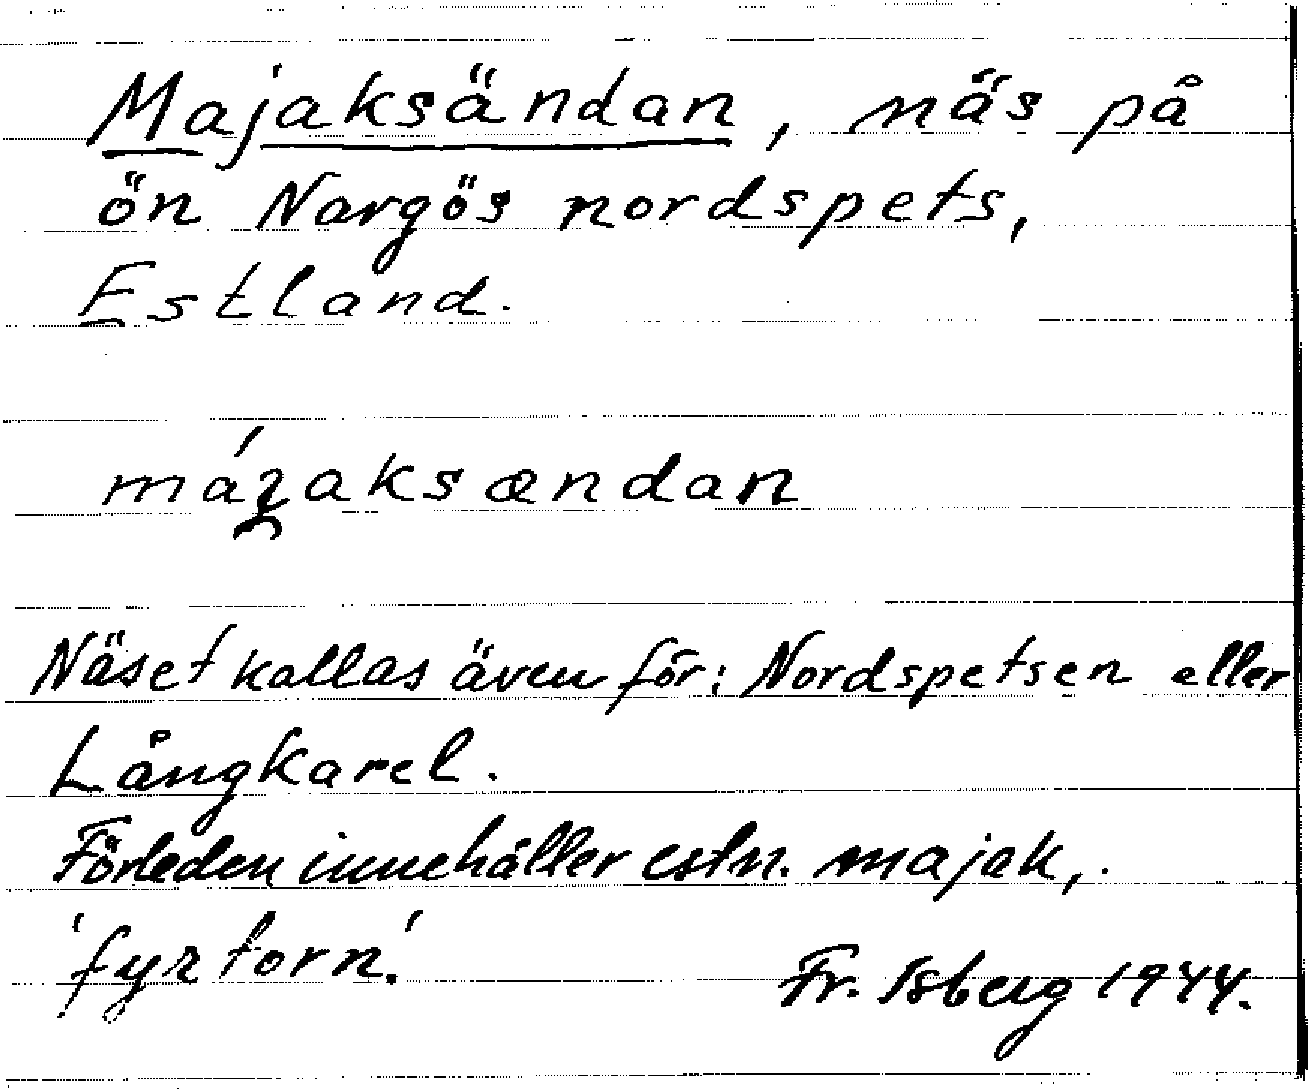 Majaksändan, näs på
ön Nargös nordspets,
Estland.
máꝛ̯aksændan
Näset kallas även för: Nordspetsen eller
Långkarel.
Förleden innehåller estn. majak,.
'fyrtorn.'
Fr. Isberg 1944.